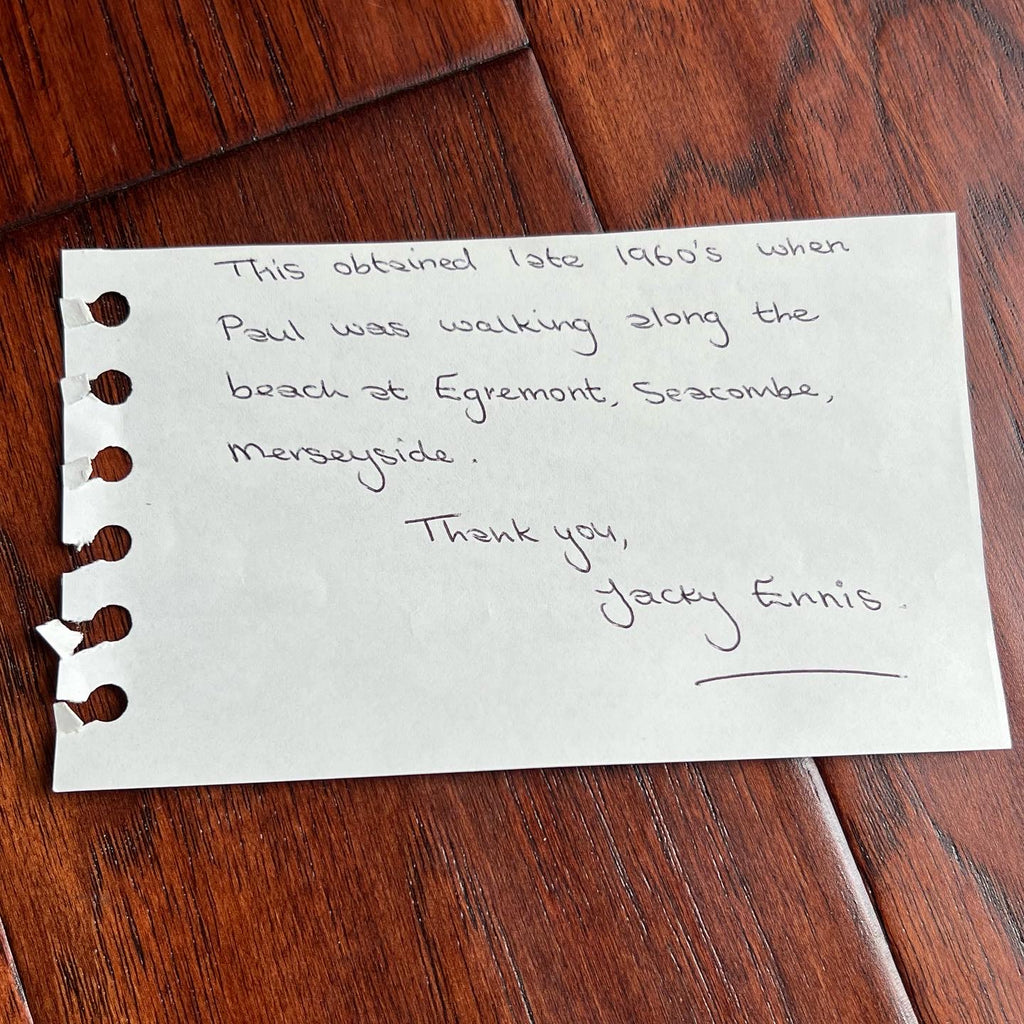 This obtained late 1960's when
Paul was walking along the
beach at Egremont, Seacombe,
Merseyside.
Thank you,
Jacky Ennis.